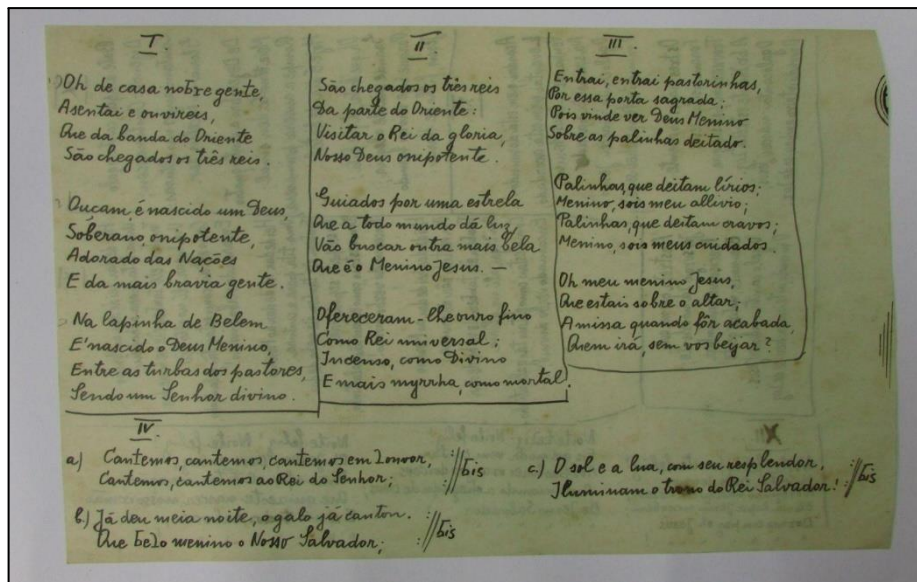 I.
Oh de casa nobre gente,
Asentai e ouvireis,
Que da banda do Oriente
São chegados os três reis.
Ouçam, é nascido um Deus,
Soberano, onipotente,
Adorado das Nações
E da mais bravia gente.
Na lapinha de Belem
E'nascido o Deus Menino,
Entre as turbas dos pastores,
Sendo um Senhor divino.
II
São chegados os três reis
Da parte do Oriente:
Visitar o Rei da gloria,
Nosso Deus onipotente.
Guiados por uma estrela
Que a todo mundo dá luz,
Vão buscar outra mais bela
Que é o Menino Jesus. —
Ofereceram-lhe ouro fino
Como Rei universal;
Incenso, como Divino
E mais myrrha, como mortal.
III.
Entrai, entrai pastorinhas,
Por essa porta sagrada;
Pois vinde ver Deus Menino
Sobre as palinhas deitado.
Palinhas, que deitam lírios;
Menino, sois meu allivio;
Palinhas, que deitam cravos;
Menino, sois meus cuidados.
Oh meu menino Jesus,
Que estais sobre o altar;
A missa quando fôr acabada,
Quem irá, sem vos beijar?
IV
a) Cantemos, cantemos, cantemos em Louvor, :// bis
Cantemos, cantemos ao Rei do Senhor;
b) Já deu meia noite, o galo já cantou. :// bis
Que belo menino o Nosso Salvador;
X
c) O sol e a lua, com seu resplendor, :// bis
Iluminam o trono do Rei Salvador!